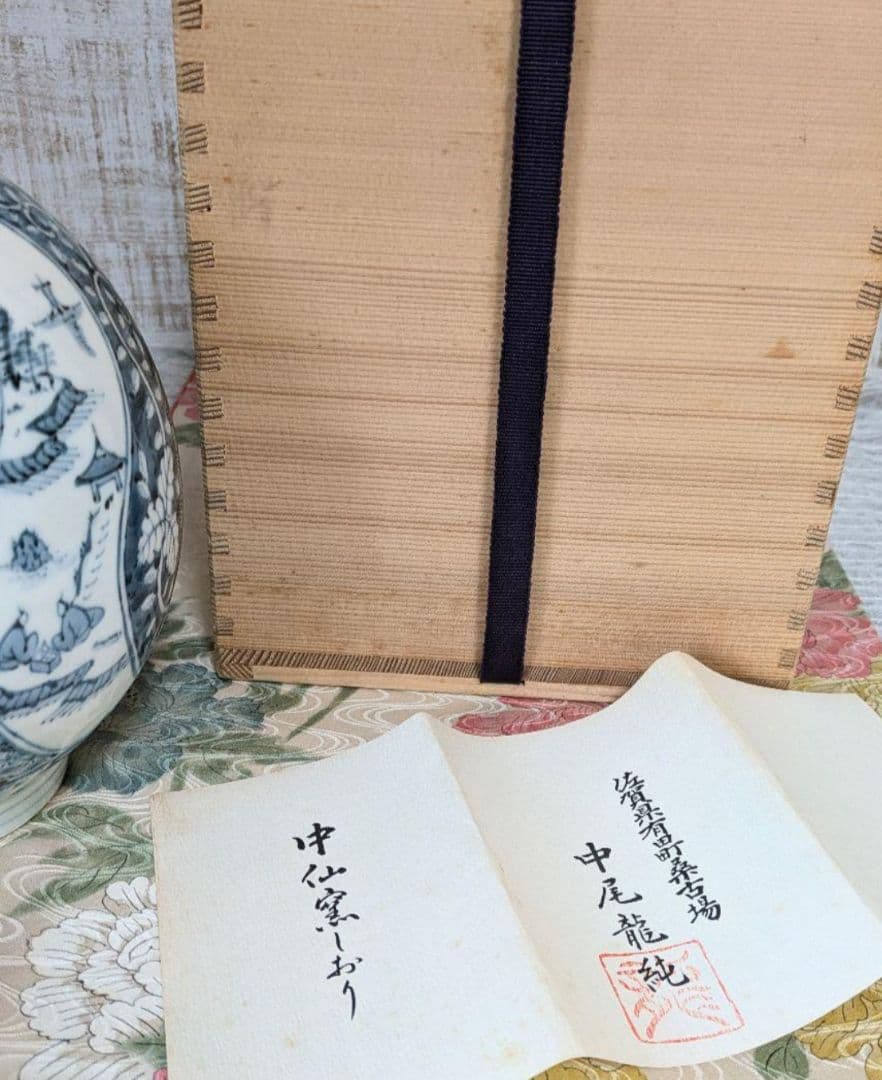 佐賀県有田町桑古場
中尾龍純
中仙窯しおり